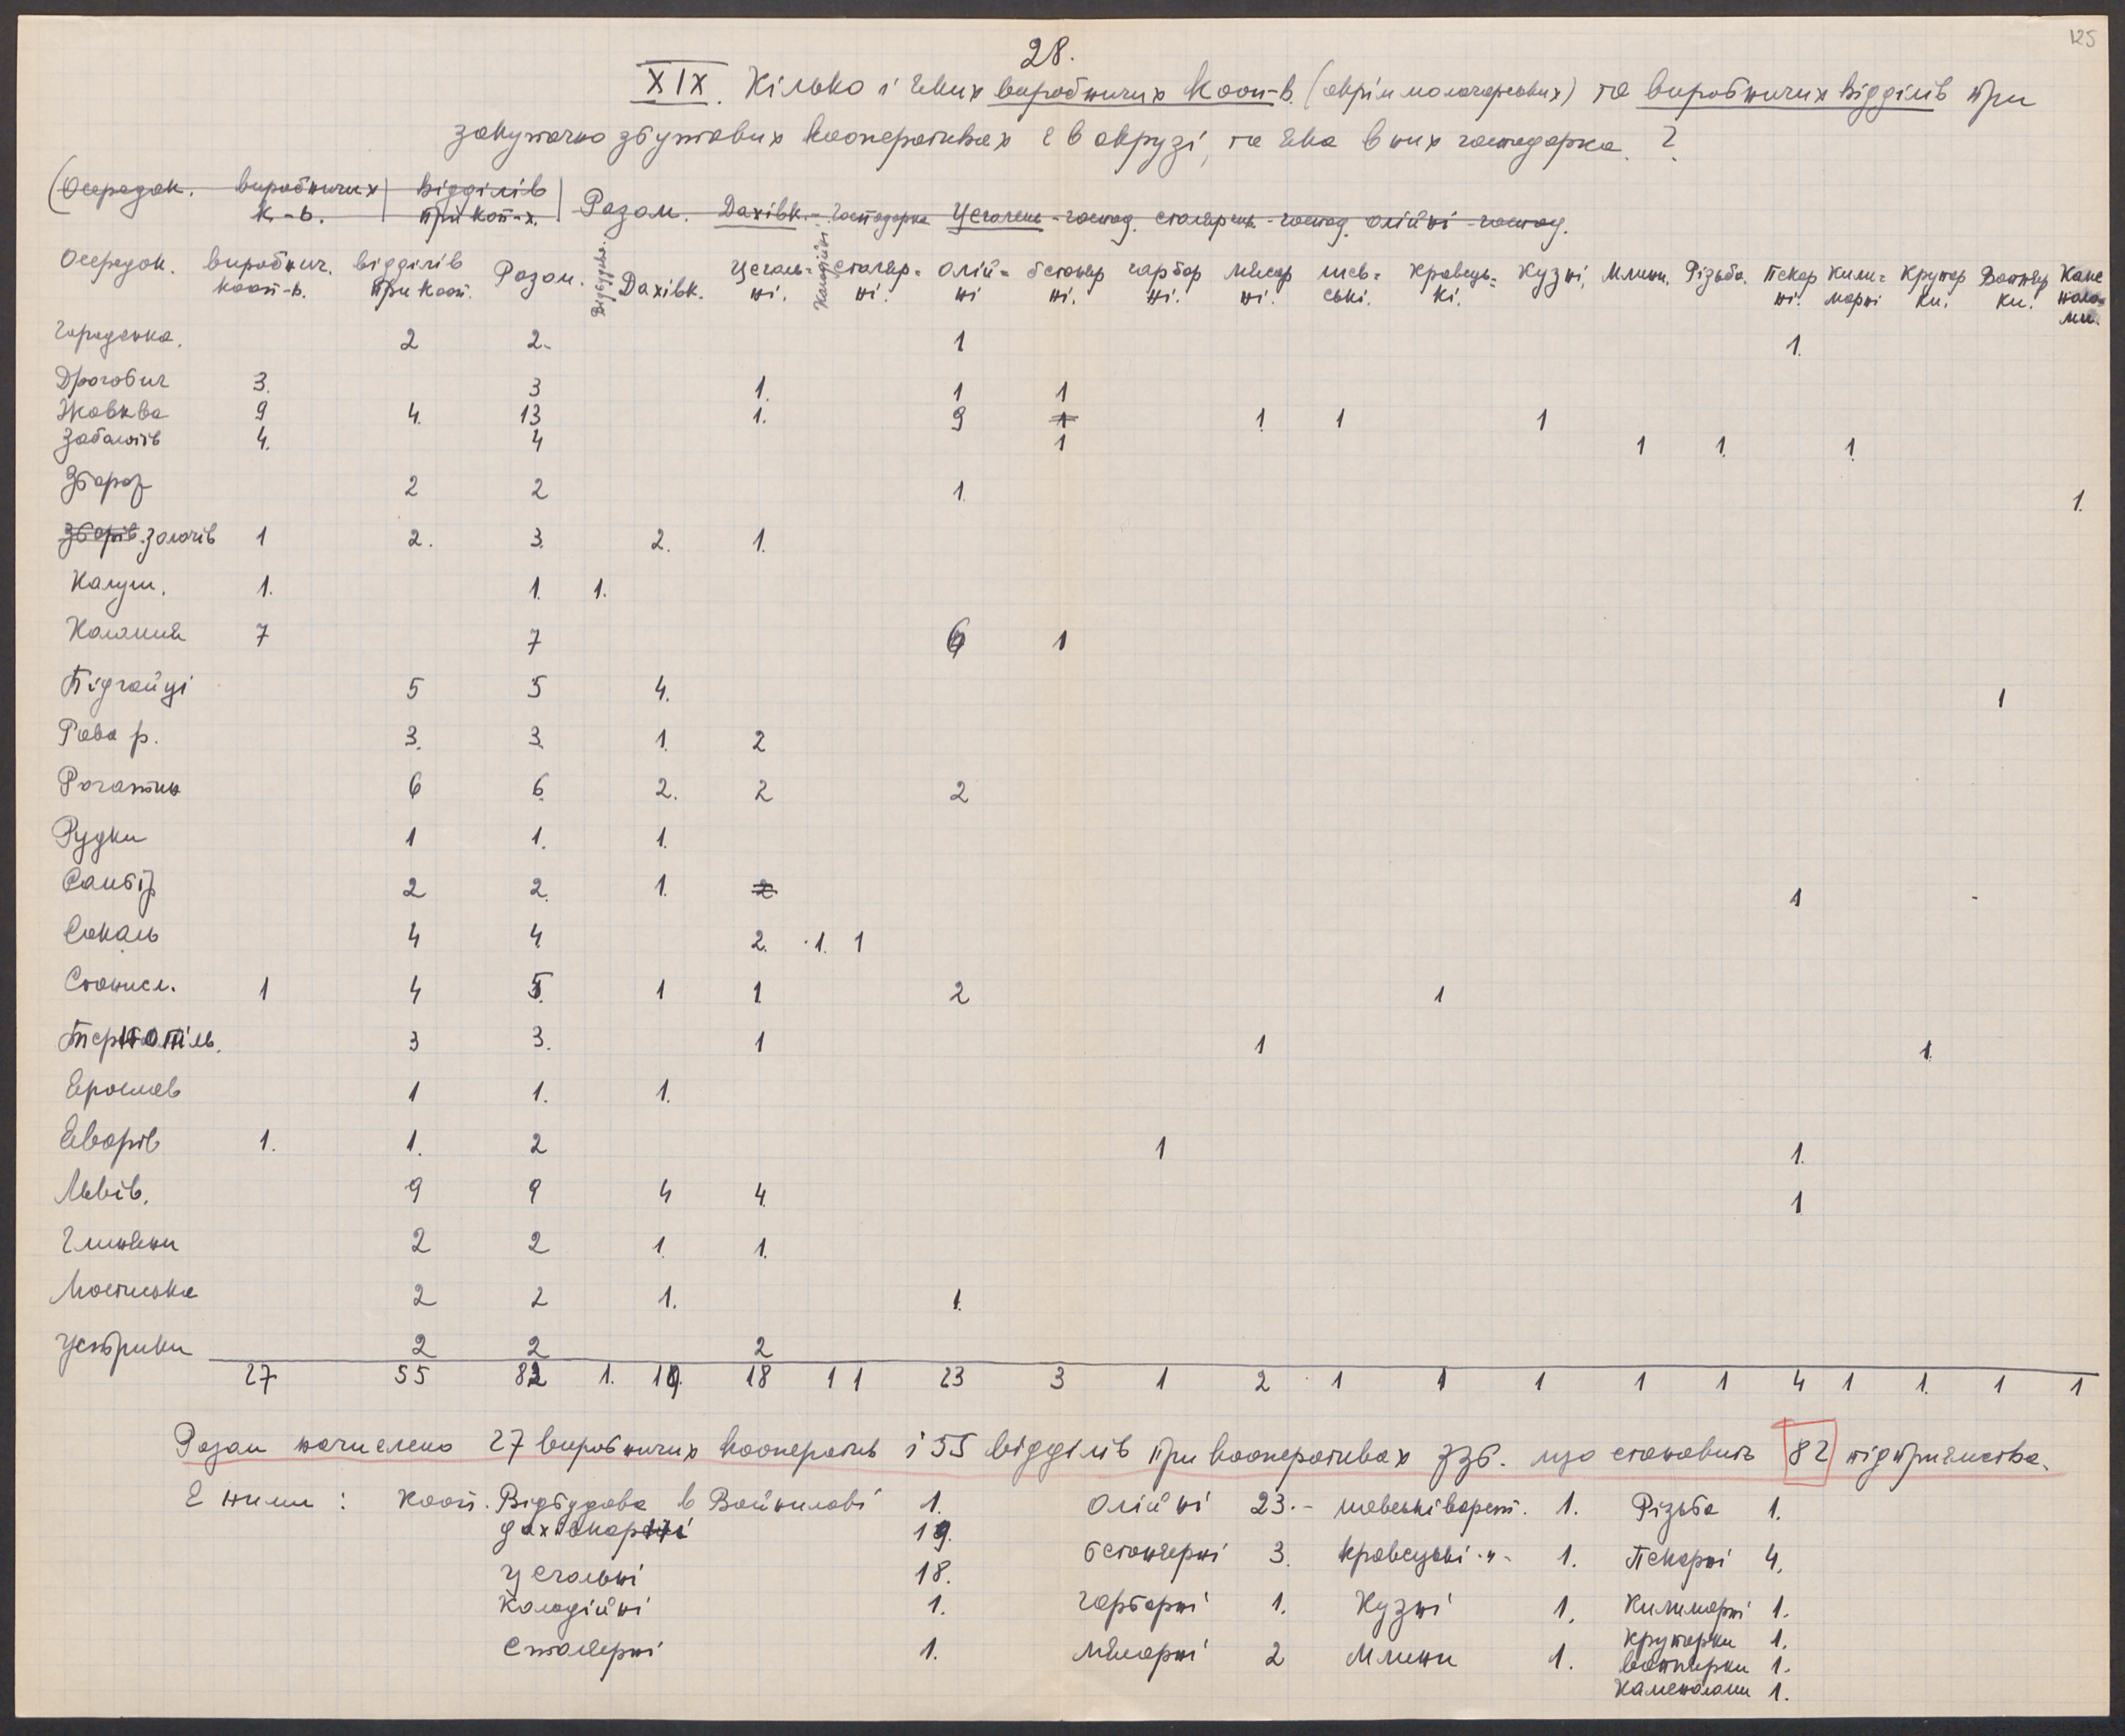 125
28.
XIX. Кілько і яких виробничих кооп-в. (окрім молочарських) та виробничих відділів при
закупочно збутових кооперативах є в окрузі, та яка в них господарка. ?
(Осередок. виробничих к.-в. | відділів при кооп-х. | Разом. Дахівк. - господарка Цегалень - господ. столярень - господ. олійні - господ.
Осередок. виробнич. кооп-в. відділів при кооп. Разом. Відбудови. Дахівк. Цегаль-ні. Колодійні столяр-ні. Олій-ні бетоняр ні. гарбар ні. мясар ні. шев-ські. Кравець-кі. Кузні, Млини. Різьба. Пекар ні. Кили-марні Крупар ки. Вапняр ки. Каме ноло-ми.
Городенка. 2 2. 1 1.
Дрогобич 3. 3 1. 1 1
Жовква 9 4. 13 1. 9 1 1. 1 1
Заболотів 4. 4 1 1 1. 1.
Збараж 2 2 1. 1.
Зборів. Золочів 1 2. 3. 2. 1.
Калуш. 1. 1. 1.
Коломия 7 7 6 1
Підгайці 5 5 4. 1
Рава р. 3. 3. 1. 2
Рогатин 6 6. 2. 2 2
Рудки 1 1. 1.
Самбір 2 2. 1. 2 1
Сокаль 4 4. 2. 1. 1
Станисл. 1 4 5. 1 1. 2 1
Тернопіль. 3 3. 1 1 1.
Ярослав 1 1. 1.
Яворів 1. 1. 2 1 1.
Львів. 9 9 4 4. 1
Глиняни 2 2 1. 1.
Мостиська 2 2 1. 1.
Устрики 2 2 2
27 55 82 1. 19. 18 1 1 23 3 1 2 1 1 1 1 1 4 1 1. 1 1
Разом начислено 27 виробничих кооператив і 55 відділів при кооперативах ззб. що становить 82 підприємства.
Є ними: Кооп. Відбудова в Войнилові 1. Олійні 23.- шевські варст. 1. Різьба 1.
дахівкарні 19. бетонярні 3. кравецькі -"- 1. Пекарні 4.
Цегольні 18. Гарбарні 1. Кузні 1. Килимарні 1.
Колодійні 1. Крупарки 1.
Столярні 1. Мясарні 2 Млини 1. вапнярки 1.
Каменоломи 1.